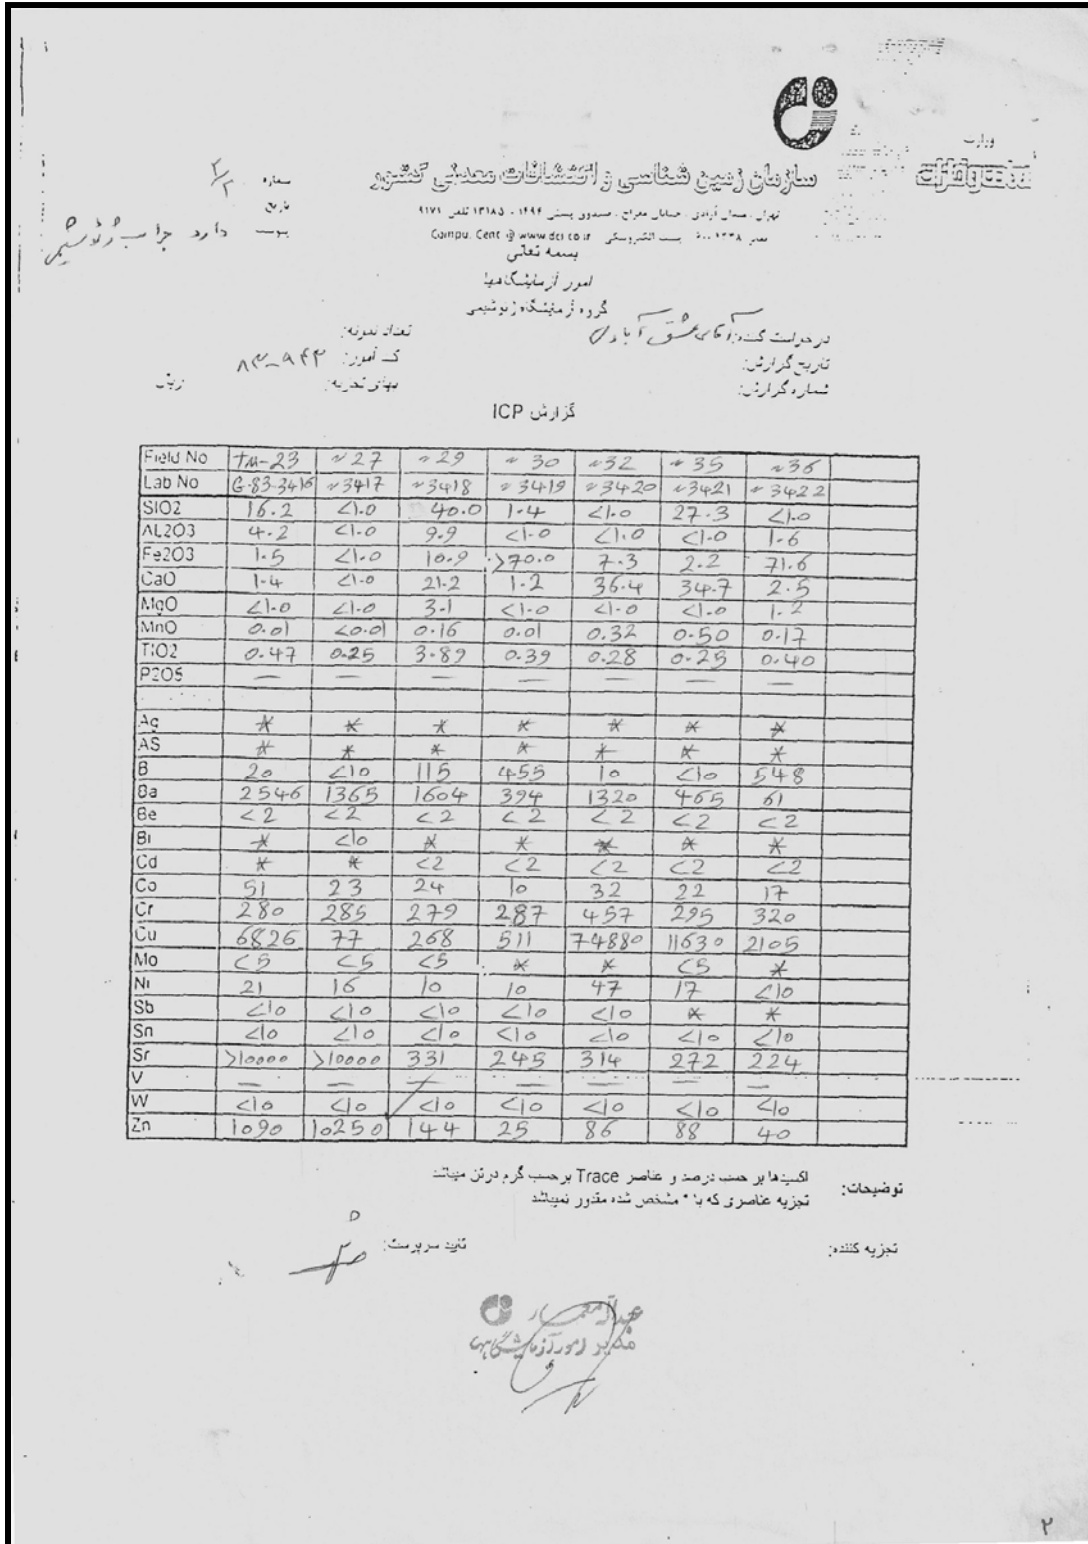 وزارت
سازمان زمین شناسی و اکتشافات معدنی کشور
شماره ۲/۲
تاریخ
پیوست دارد
تهران ـ میدان آزادی ـ خیابان معراج ـ صندوق پستی ۱۴۹۴ - ۱۳۱۸۵ تلفن ۹۱۷۱
پست الکترونیکی Compu. Cent @ www.dci.co.ir
بسمه تعالی
امور آزمایشگاهها
گروه آزمایشگاه ژئوشیمی
درخواست کننده: آقای عشق آبادی
تعداد نمونه:
تاریخ گزارش:
کد امور: ۸۳-۹۴۳
شماره گزارش:
بهای تجزیه: ریال
گزارش ICP
Field No TM-23 〃27 〃29 〃30 〃32 〃35 〃36
Lab No G-83-3416 〃3417 〃3418 〃3419 〃3420 〃3421 〃3422
SIO2 16.2 <1.0 40.0 1.4 <1.0 27.3 <1.0
AL2O3 4.2 <1.0 9.9 <1.0 <1.0 <1.0 1.6
Fe2O3 1.5 <1.0 10.9 >70.0 7.3 2.2 71.6
CaO 1.4 <1.0 21.2 1.2 36.4 34.7 2.5
MgO <1.0 <1.0 3.1 <1.0 <1.0 <1.0 1.2
MnO 0.01 <0.01 0.16 0.01 0.32 0.50 0.17
TiO2 0.47 0.25 3.89 0.39 0.28 0.25 0.40
P2O5 — — — — — — —
Ag * * * * * * *
AS * * * * * * *
B 20 <10 115 455 10 <10 548
Ba 2546 1365 1604 394 1320 465 61
Be <2 <2 <2 <2 <2 <2 <2
Bi * <10 * * * * *
Cd * * <2 <2 <2 <2 <2
Co 51 23 24 10 32 22 17
Cr 280 285 279 287 457 295 320
Cu 6826 77 268 511 74880 11630 2105
Mo <5 <5 <5 * * <5 *
Ni 21 16 10 10 47 17 <10
Sb <10 <10 <10 <10 <10 * *
Sn <10 <10 <10 <10 <10 <10 <10
Sr >10000 >10000 331 245 314 272 224
V — — — — — — —
W <10 <10 <10 <10 <10 <10 <10
Zn 1090 10250 144 25 86 88 40
توضیحات: اکسیدها بر حسب درصد و عناصر Trace بر حسب گرم درتن میباشد
تجزیه عناصری که با * مشخص شده مقدور نمیباشد
تجزیه کننده:
تایید سرپرست:
مدیر امور آزمایشگاهها
۲